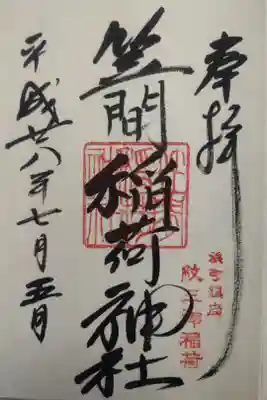 奉拝
浜町鎮守
紋三郎稲荷
笠間稲荷神社
平成廿八年七月五日